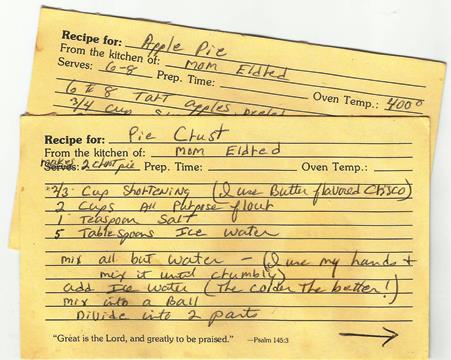 Recipe for: Apple Pie
From the kitchen of: Mom Eldred
Serves: 6-8 Prep. Time: Oven Temp.: 400°
6 to 8 Tart apples, peeled
3/4 cup
Recipe for: Pie Crust
From the kitchen of: Mom Eldred
makes
Serves: 2 crust pie Prep. Time: Oven Temp.:
2/3 Cup Shortening (I use Butter flavored Crisco)
2 Cups All Purpose flour
1 Teaspoon Salt
5 Tablespoons Ice Water
mix all but water - (I use my hands +
mix it until crumbly)
add Ice water (The colder The better!)
mix into a Ball
Divide into 2 parts
"Great is the Lord, and greatly to be praised." —Psalm 145:3